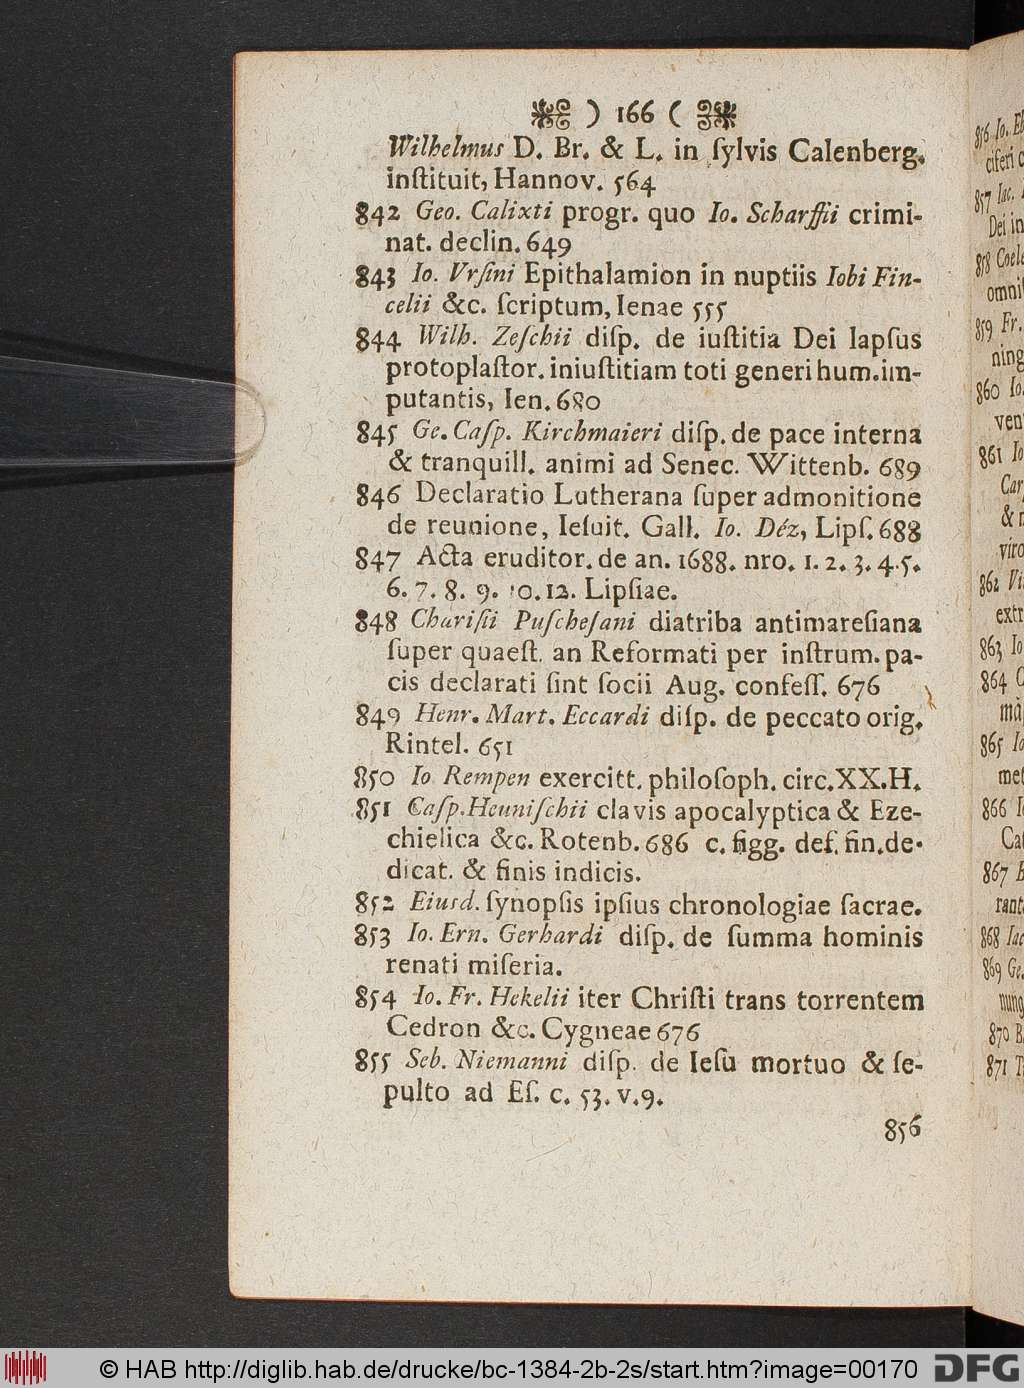 ) 166 (
Wilhelmus D. Br. & L. in ſylvis Calenberg.
inſtituit, Hannov. 564
842 Geo. Calixti progr. quo Io. Scharffii crimi-
nat. declin. 649
843 Io. Vrſini Epithalamion in nuptiis Iobi Fin-
celii &c. ſcriptum, Ienae 555
844 Wilh. Zeſchii diſp. de iuſtitia Dei lapſus
protoplaſtor. iniuſtitiam toti generi hum. im-
putantis, Ien. 680
845 Ge. Caſp. Kirchmaieri diſp. de pace interna
& tranquill. animi ad Senec. Wittenb. 689
846 Declaratio Lutherana ſuper admonitione
de reunione, Ieſuit. Gall. Io. Déz, Lipſ. 688
847 Acta eruditor. de an. 1688. nro. 1. 2. 3. 4. 5.
6. 7. 8. 9. 10. 12. Lipſiae.
848 Chariſii Puſcheſani diatriba antimareſiana
ſuper quaeſt. an Reformati per inſtrum. pa-
cis declarati ſint ſocii Aug. confeſſ. 676
849 Henr. Mart. Eccardi diſp. de peccato orig.
Rintel. 651
850 Io. Rempen exercitt. philoſoph. circ. XX. H.
851 Caſp. Heuniſchii clavis apocalyptica & Eze-
chielica &c. Rotenb. 686 c. figg. def. fin. de-
dicat. & finis indicis.
852 Eiusd. ſynopſis ipſius chronologiae ſacrae.
853 Io. Ern. Gerhardi diſp. de ſumma hominis
renati miſeria.
854 Io. Fr. Hekelii iter Chriſti trans torrentem
Cedron &c. Cygneae 676
855 Seb. Niemanni diſp. de Ieſu mortuo & ſe-
pulto ad Eſ. c. 53. v. 9.
856
856 Io.
ciferi
857 Iac.
Dei in
858
omni
859 Fr.
ning
860 Io.
ven
861 Io
Car
&
viro
862
extr
863 Io
864
865
met
866
Cat
867
rant
868 Iac
869 Ge.
nung
870 B
871 T
© HAB http://diglib.hab.de/drucke/bc-1384-2b-2s/start.htm?image=00170
DFG